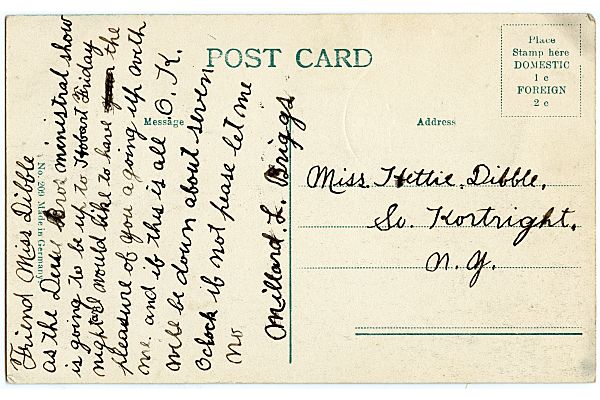 POST CARD
Place
Stamp here
DOMESTIC
1 c
FOREIGN
2 c
Message
Address
No. 209 Made in Germany
Friend Miss Dibble
as the Bros ministral show
is going to be up to Hobart Friday
night I would like to have the
pleasure of you a going up with
me and if this is all O.K.
will be down about seven
Oclock if not pease let me
no
Millard. L. Briggs
Miss. Hettie. Dibble.
So. Kortright.
N. Y.